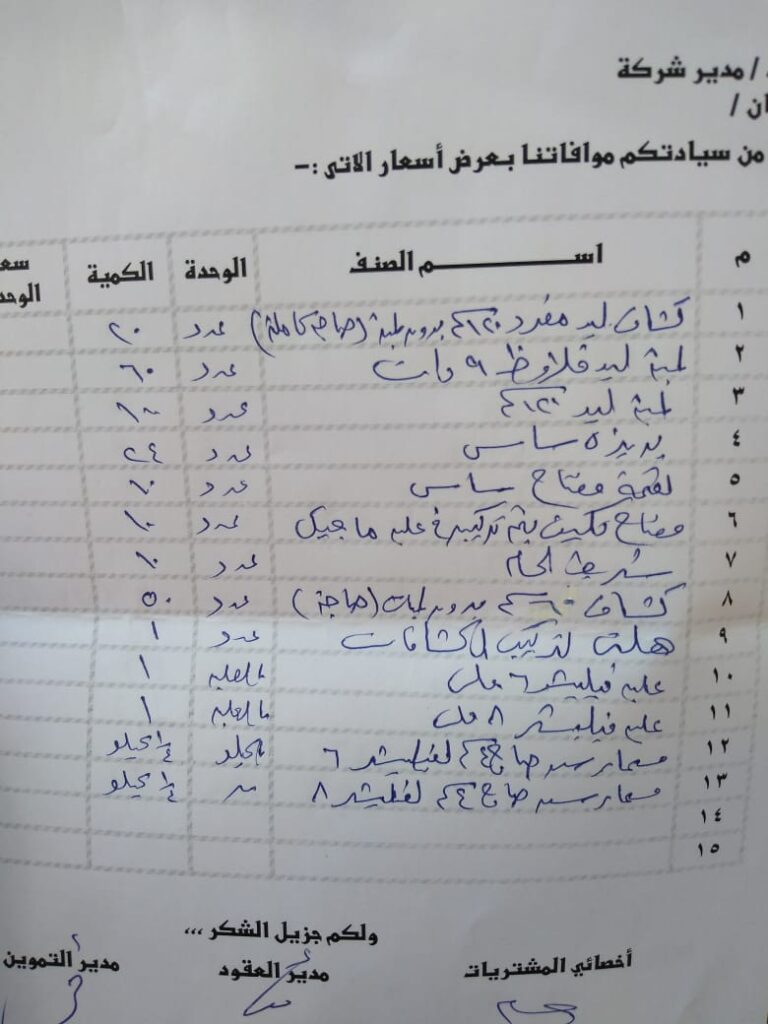 / مدير شركة
ان /
من سيادتكم موافاتنا بعرض أسعار الاتى :-
م اســـــم الصنف الوحدة الكمية سعر الوحد
١ كشاف ليد مفرد ١٢٠سم بدون لمبة (صاج كاملة) عدد ٢٠
٢ لمبة ليد قلاوظ ٩ وات عدد ٦٠
٣ لمبة ليد ١٢٠سم عدد
٤ بريزه ساسى عدد ٢٤
٥ لقمة مفتاح ساسى عدد ١٠
٦ مفتاح تكييف يتم تركيبه فى علبه ماجيك عدد ١٠
٧ عدد ١٠
٨ كشاف ٦٠سم بدون لمبات (صاجة) عدد ٥٠
٩ لتركيب الكشافات عدد ١
١٠ علبه فيليشر ٦ مللى بالعلبه ١
١١ علبه فيليشر ٨ مللى بالعلبه ١
١٢ مسمار صاج ٤سم لفيليشر ٦ بالكيلو ١/٤ كيلو
١٣ مسمار صاج ٤سم لفيليشر ٨ ١/٤ كيلو
١٤
١٥
ولكم جزيل الشكر ,,,
أخصائي المشتريات مدير العقود مدير التموين